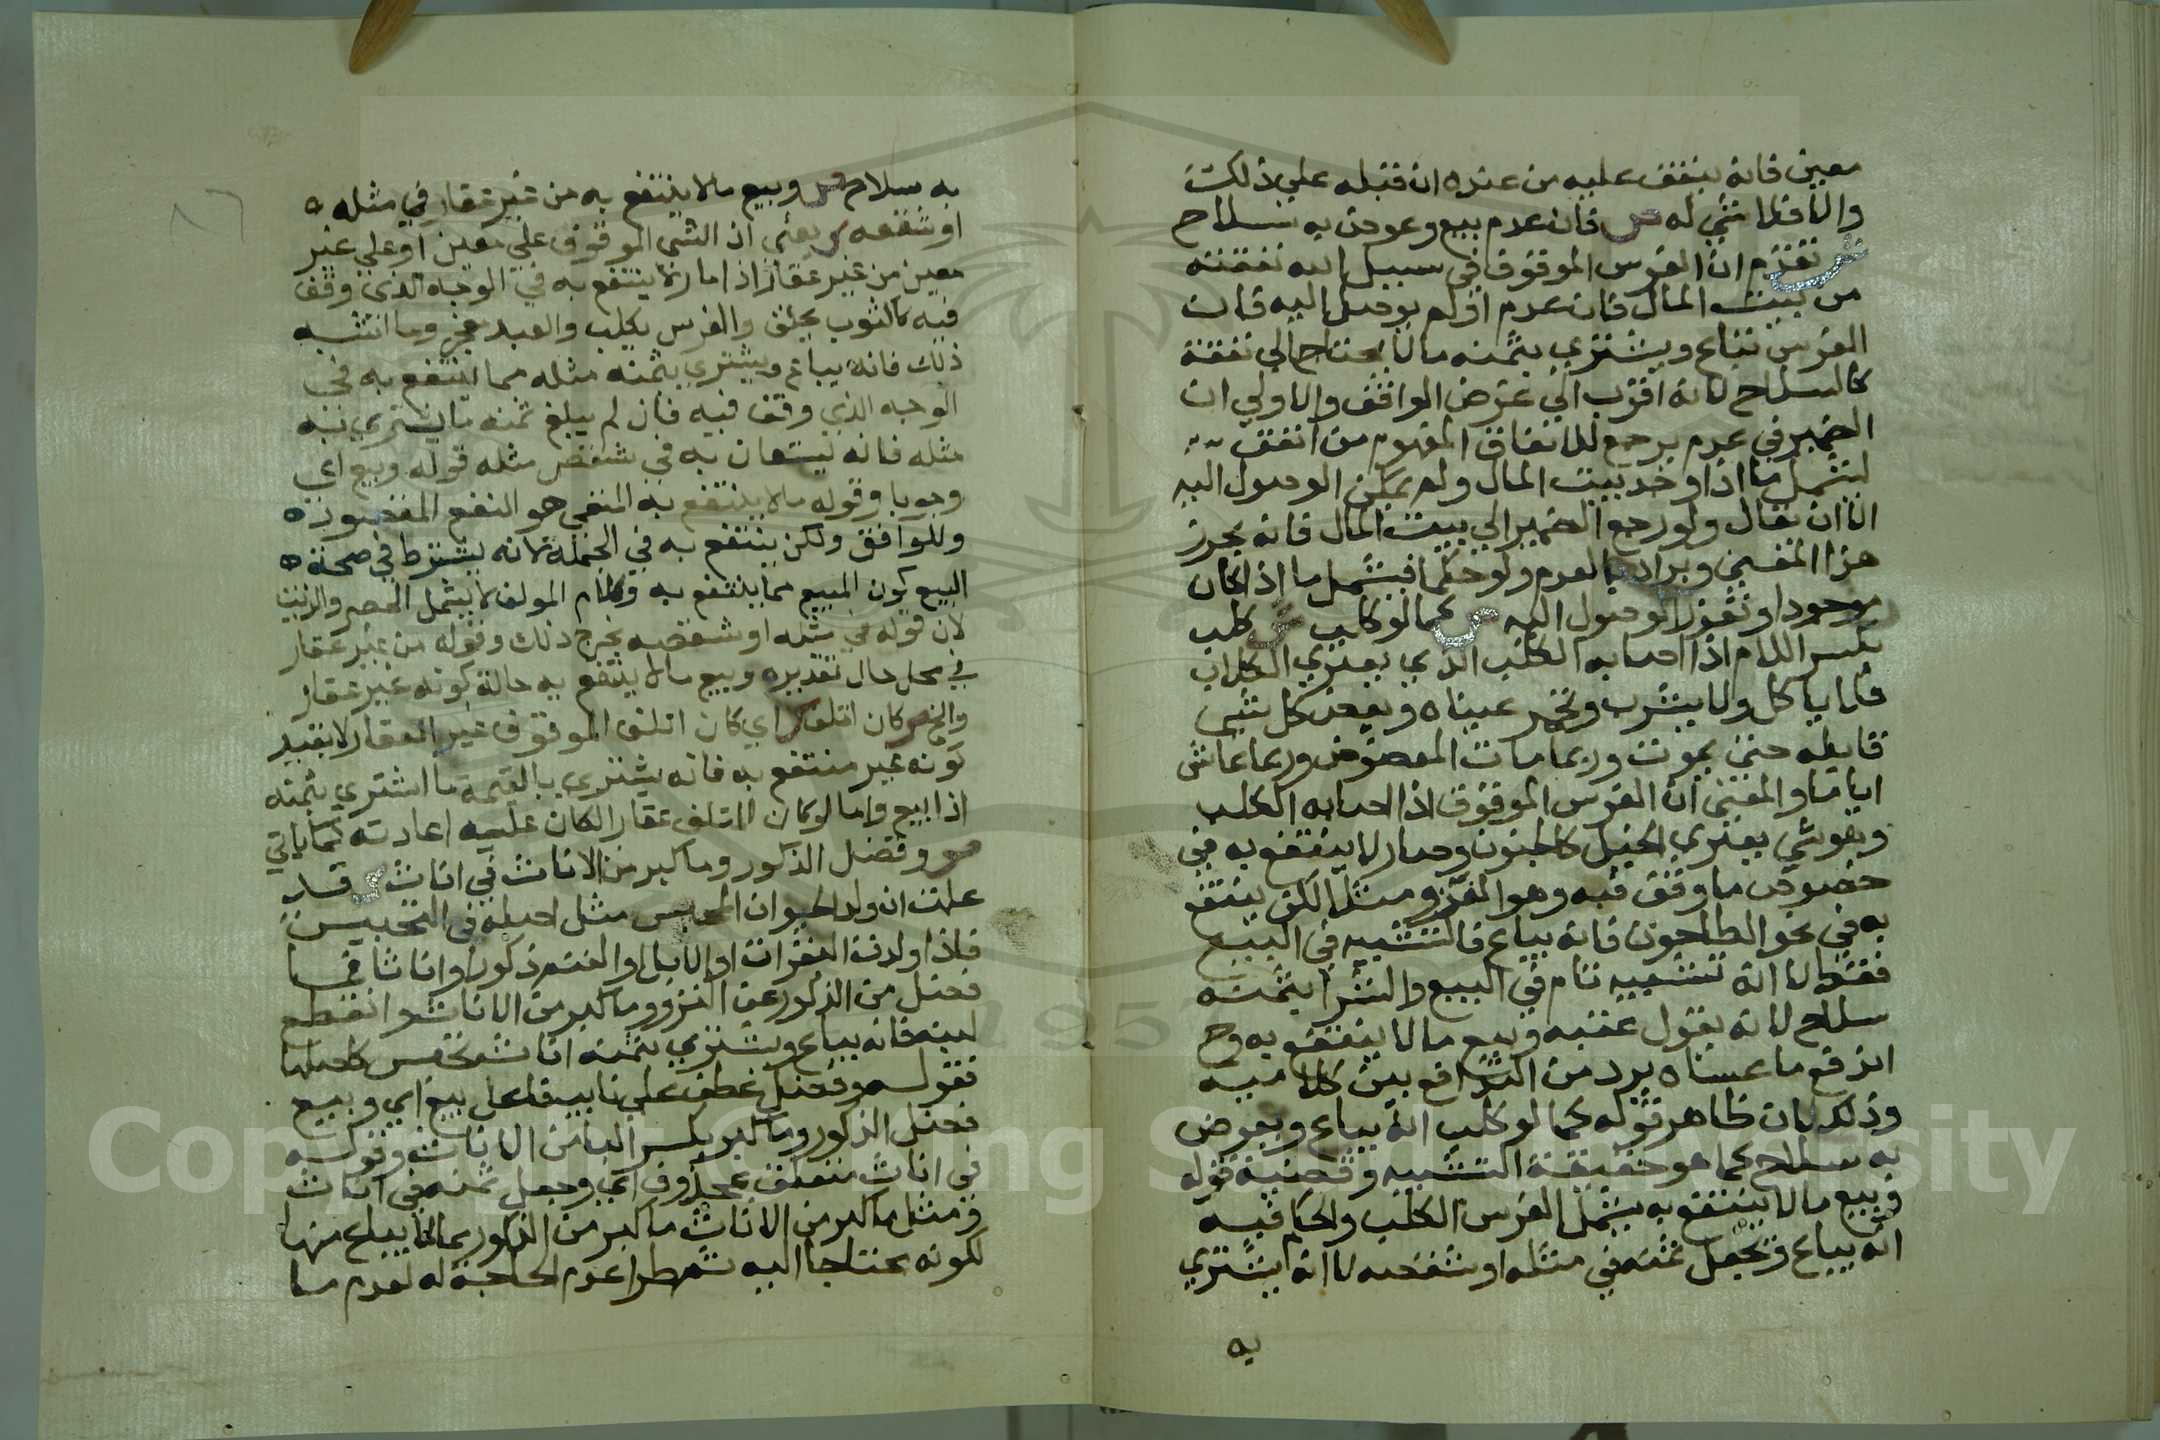 معين فانه ينفق عليه من عنده ان قبله على ذلك
والا فلا شي له ص فان عدم بيع وعوض به سلاح
ش تقدم ان الفرس الموقوف في سبيل الله نفقته
من بيت المال فان عدم اولم يوصل اليه فان
الفرس تباع ويشترى بثمنه ما لا يحتاج الى نفقة
كالسلاح لانه اقرب الى غرض الواقف والاولى ان
الضمير في عدم يرجع للانفاق المفهوم من انفق
ليشمل ما اذا وجد بيت المال ولم يمكن الوصول اليه
الا ان يقال ولو رجع الضمير الى بيت المال فانه يحرز
هذا المعنى ويراد بالعدم ولو حكما فيشمل ما اذا كان
موجودا وتعذر الوصول اليه ص كما لو كلب ش كلب
بكسر اللام اذا اصابه الكلب الذي يعتري الكلاب
فلا ياكل ولا يشرب وتحمر عيناه ويعض كل شي
قابله حتى يموت وربما مات المعضوض وربما عاش
اياما والمعنى ان الفرس الموقوف اذا اصابه الكلب
وهو شي يعتري الخيل كالجنون وصار لا ينتفع به في
خصوص ما وقف فيه وهو الغزو مثلا لكن ينتفع
به في نحو الطاحون فانه يباع فالتشبيه في البيع
فقط لا انه تشبيه تام في البيع والشرا بثمنه
سلاح لانه يقول عقبه وبيع ما لا ينتفع به وح
اندفع ما عساه يرد من التدافع بين كلاميه
وذلك لان ظاهر قوله كما لو كلب انه يباع ويعوض
به سلاح كما هو حقيقة التشبيه وقضية قوله
وبيع ما لا ينتفع به يشمل الفرس الكلب والحكم فيه
انه يباع ويجعل ثمنه في مثله او شقصه لا انه يشترى
به
به سلاح ص وبيع ما لا ينتفع به من غير عقار في مثله
او شقصه ش يعني ان الشي الموقوف على معين او على غير
معين من غير عقار اذا صار لا ينتفع به في الوجه الذي وقف
فيه كالثوب يخلق والفرس يكلب والعبد يهرم وما اشبه
ذلك فانه يباع ويشترى بثمنه مثله مما ينتفع به في
الوجه الذي وقف فيه فان لم يبلغ ثمنه ما يشترى به
مثله فانه يستعان به في شقص مثله قوله وبيع اي
وجوبا وقوله ما لا ينتفع به المنفي هو النفع المقصود
وللواقف ولكن ينتفع به في الجملة لانه يشترط في صحة
البيع كون المبيع مما ينتفع به وكلام المولف لا يشمل الحصر والزيت
لان قوله في مثله او شقصه يخرج ذلك وقوله من غير عقار
في محل حال تقديره وبيع ما لا ينتفع به حالة كونه غير عقار
كان اتلف ش اي كان اتلف الموقوف غير العقار لا بقيد
كونه غير منتفع به فانه يشترى بالقيمة ما اشترى بثمنه
اذا بيع واما لو كان المتلف عقارا لكان عليه اعادته كما ياتي
ص وفضل الذكور وما كبر من الاناث في اناث ش قد
علمت ان ولد الحيوان المحبس مثل اصله في التحبيس
فاذا ولدت البقرات او الابل او الغنم ذكورا واناثا فما
فضل من الذكور عن النزو وما كبر من الاناث وانقطع
لبنه فانه يباع ويشترى بثمنه اناث تحبس كاصلها
فقوله وفضل عطف على نايب فاعل بيع اي وبيع
فضل الذكور وما كبر بكسر البا من الاناث وقوله
في اناث متعلق بمحذوف اي وجعل ثمنه في اناث
ومثل ما كبر من الاناث ما كبر من الذكور مما لا يباع منها
لكونه محتاجا اليه ثم طرا عدم الحاجة له لعدم ما